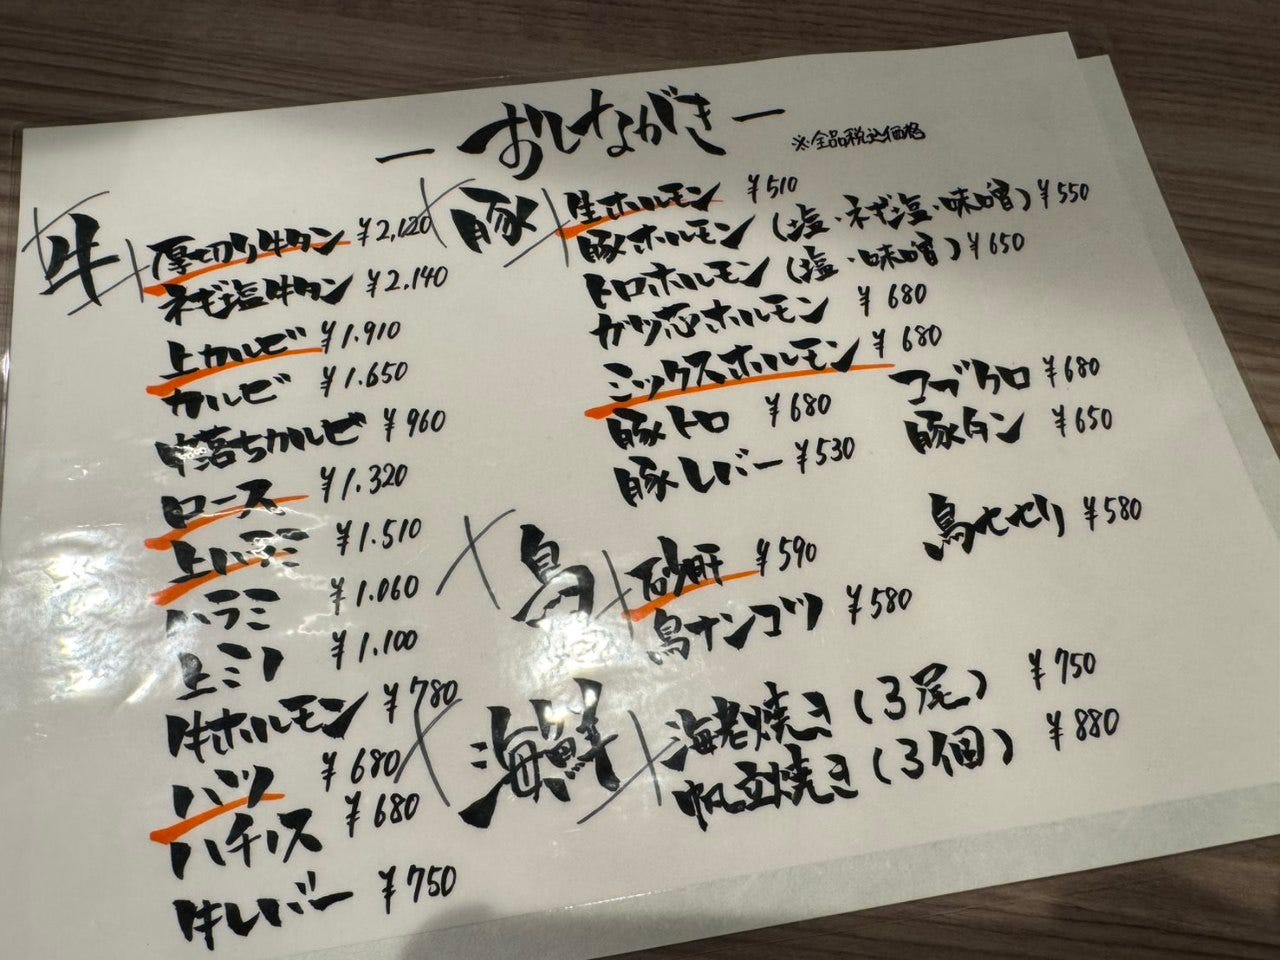 ー おしながき ー
※全品税込価格
牛
厚切り牛タン ¥2,120
ネギ塩牛タン ¥2.140
上カルビ ¥1.910
カルビ ¥1.650
中落ちカルビ ¥960
ロース ¥1.320
上ハラミ ¥1.510
ハラミ ¥1.060
上ミノ ¥1.100
牛ホルモン ¥780
ハツ ¥680
ハチノス ¥680
牛レバー ¥750
豚
生ホルモン ¥510
豚ホルモン (塩・ネギ塩・味噌) ¥550
トロホルモン (塩・味噌) ¥650
ガツ芯ホルモン ¥680
ミックスホルモン ¥680
豚トロ ¥680
コブクロ ¥680
豚レバー ¥530
豚タン ¥650
鳥
砂肝 ¥590
鳥セセリ ¥580
鳥ナンコツ ¥580
海鮮
海老焼き (3尾) ¥750
帆立焼き (3個) ¥880